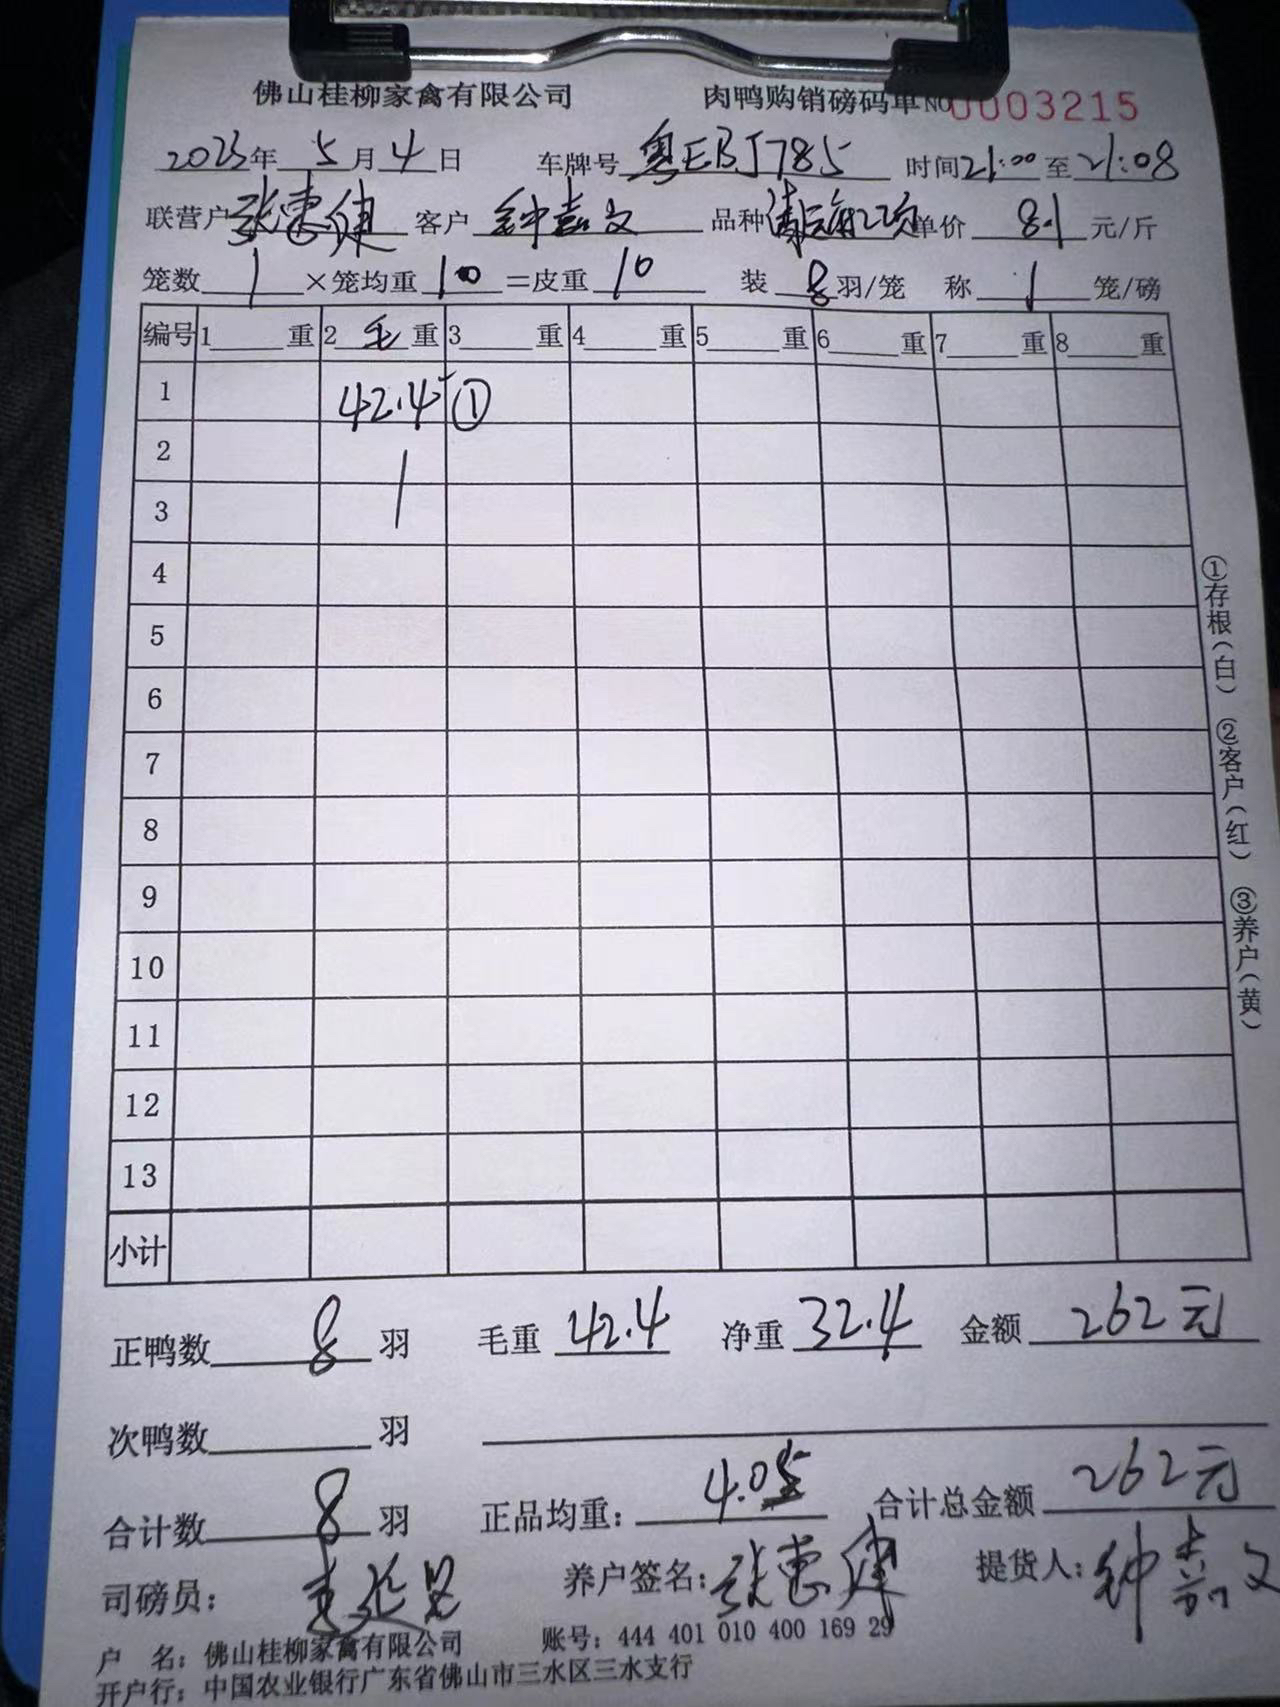 佛山桂柳家禽有限公司 肉鸭购销磅码单 NO 0003215
2023年 5 月 4 日 车牌号 粤EBJ785 时间 21:00 至 21:08
联营户 张惠健 客户 钟嘉文 品种 单价 8.1 元/斤
笼数 1 ×笼均重 10 =皮重 10 装 8 羽/笼 称 1 笼/磅
编号 1 重 2 毛 重 3 重 4 重 5 重 6 重 7 重 8 重
1 42.4 ①
2
3
4
5
6
7
8
9
10
11
12
13
小计
①存根(白) ②客户(红) ③养户(黄)
正鸭数 8 羽 毛重 42.4 净重 32.4 金额 262元
次鸭数 羽
合计数 8 羽 正品均重: 4.05 合计总金额 262元
司磅员: 养户签名: 张惠健 提货人: 钟嘉文
户 名: 佛山桂柳家禽有限公司 账号: 444 401 010 400 169 29
开户行: 中国农业银行广东省佛山市三水区三水支行